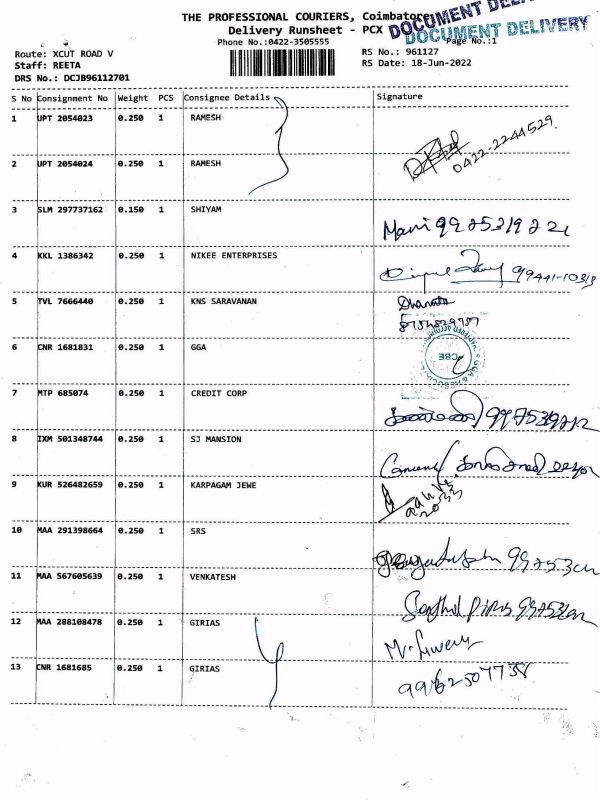 THE PROFESSIONAL COURIERS, Coimbatore
DOCUMENT DELIVERY
DOCUMENT DELIVERY
Delivery Runsheet - PCX
Phone No.:0422-3505555
Page No.:1
Route: XCUT ROAD V
RS No.: 961127
Staff: REETA
RS Date: 18-Jun-2022
DRS No.: DCJB96112701
S No Consignment No Weight PCS Consignee Details Signature
1 UPT 2054023 0.250 1 RAMESH
0422-2244529
2 UPT 2054024 0.250 1 RAMESH
3 SLM 297737162 0.150 1 SHIYAM
Mani
4 KKL 1386342 0.250 1 NIKEE ENTERPRISES
99441-10313
5 TVL 7666440 0.250 1 KNS SARAVANAN
6 CNR 1681831 0.250 1 GGA
GGA & ASSOCIATE
CBE
7 MTP 685074 0.250 1 CREDIT CORP
8 IXM 501348744 0.250 1 SJ MANSION
9 KUR 526482659 0.250 1 KARPAGAM JEWE
10 MAA 291398664 0.250 1 SRS
11 MAA 567605639 0.250 1 VENKATESH
12 MAA 288108478 0.250 1 GIRIAS
13 CNR 1681685 0.250 1 GIRIAS